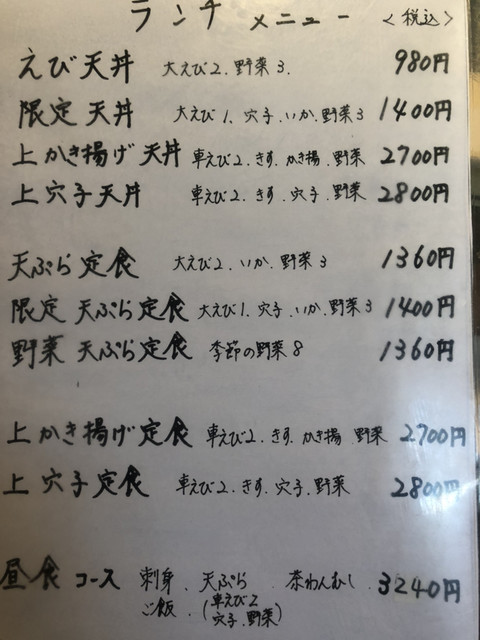 ランチ メニュー <税込>
えび天丼 大えび2.野菜3. 980円
限定天丼 大えび1.穴子.いか.野菜3 1400円
上かき揚げ天丼 車えび2.きす.かき揚.野菜 2700円
上穴子天丼 車えび2.きす.穴子.野菜 2800円
天ぷら定食 大えび2.いか.野菜3 1360円
限定 天ぷら定食 大えび1.穴子.いか.野菜3 1400円
野菜 天ぷら定食 季節の野菜8 1360円
上かき揚げ定食 車えび2.きす.かき揚.野菜 2700円
上穴子定食 車えび2.きす.穴子.野菜 2800円
昼食コース 刺身.天ぷら.茶わんむし. 3240円
ご飯.(車えび2
穴子.野菜)